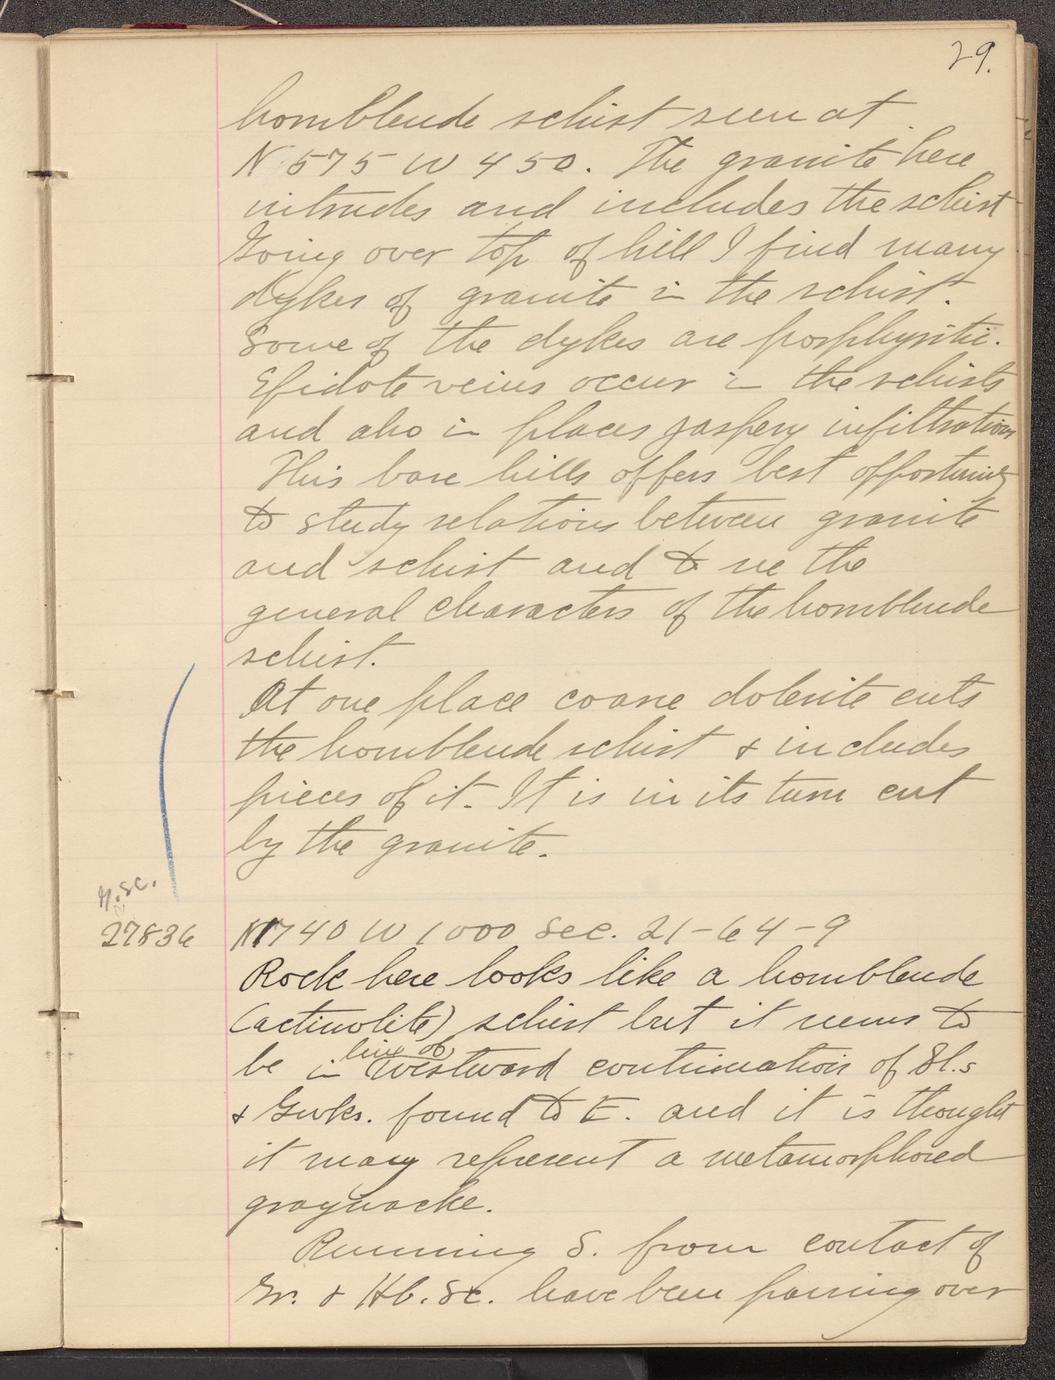 29.
hornblende schist seen at
N 575 W 450. The granite here
intrudes and includes the schist
Going over top of hill I find many
dykes of granite in the schist.
Some of the dykes are porphyritic.
Epidote veins occur in the schists
and also in places jaspery infiltrations
This bare hills offers best opportunity
to study relations between granite
and schist and to see the
general characters of the hornblende
schist.
At one place coarse dolerite cuts
the hornblende schist & includes
pieces of it. It is in its turn cut
by the granite.
H.Sc.
27836 N1740 W 1000 Sec. 21-64-9
Rock here looks like a hornblende
(actinolite) schist but it seems to
be in line of westward continuation of Sl.s
& Gwks. found to E. and it is thought
it may represent a metamorphosed
graywacke.
Running S. from contact of
Gr. & Hb. Sc. have been passing over